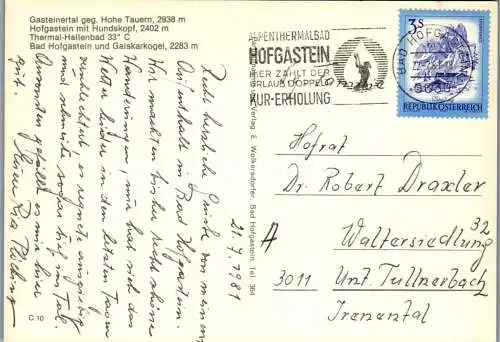 Gasteinertal geg. Hohe Tauern, 2938 m
Hofgastein mit Hundskopf, 2402 m
Thermal-Hallenbad 33° C
Bad Hofgastein und Gaiskarkogel, 2283 m
ALPENTHERMALBAD
HOFGASTEIN
HIER ZÄHLT DER
URLAUB DOPPELT
KUR-ERHOLUNG
BAD HOFGASTEIN
5630
3 S
REPUBLIK ÖSTERREICH
21.7.1981
Recht herzliche Grüße von meinem
Aufenthalt in Bad Hofgastein.
Wir machten bisher recht schöne
Wanderungen, nur hat sich das
Wetter leider in den letzten Tagen
verschlechtert es regnete ausgiebig
und schneite sogar tief ins Tal.
Ansonsten gefällt es mir hier
gut.
C 10
Verlag E. Wolkersdorfer, Bad Hofgastein, Tel. 364
Hofrat
Dr. Robert Draxler
A
Waltersiedlung 32
3011 Unt. Tullnerbach
Irenental